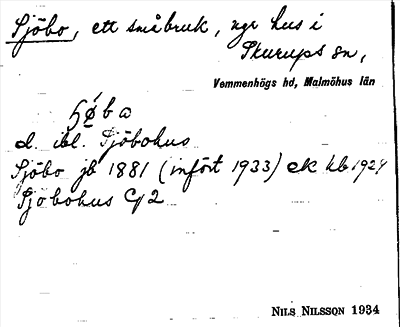 Sjöbo, ett småbruk, ngr hus i
Skurups sn,
Vemmenhögs hd, Malmöhus län
d. ibl. Sjöbohus
Sjöbo jb 1881 (infört 1933) ek kb 1924
Sjöbohus
NILS NILSSON 1934